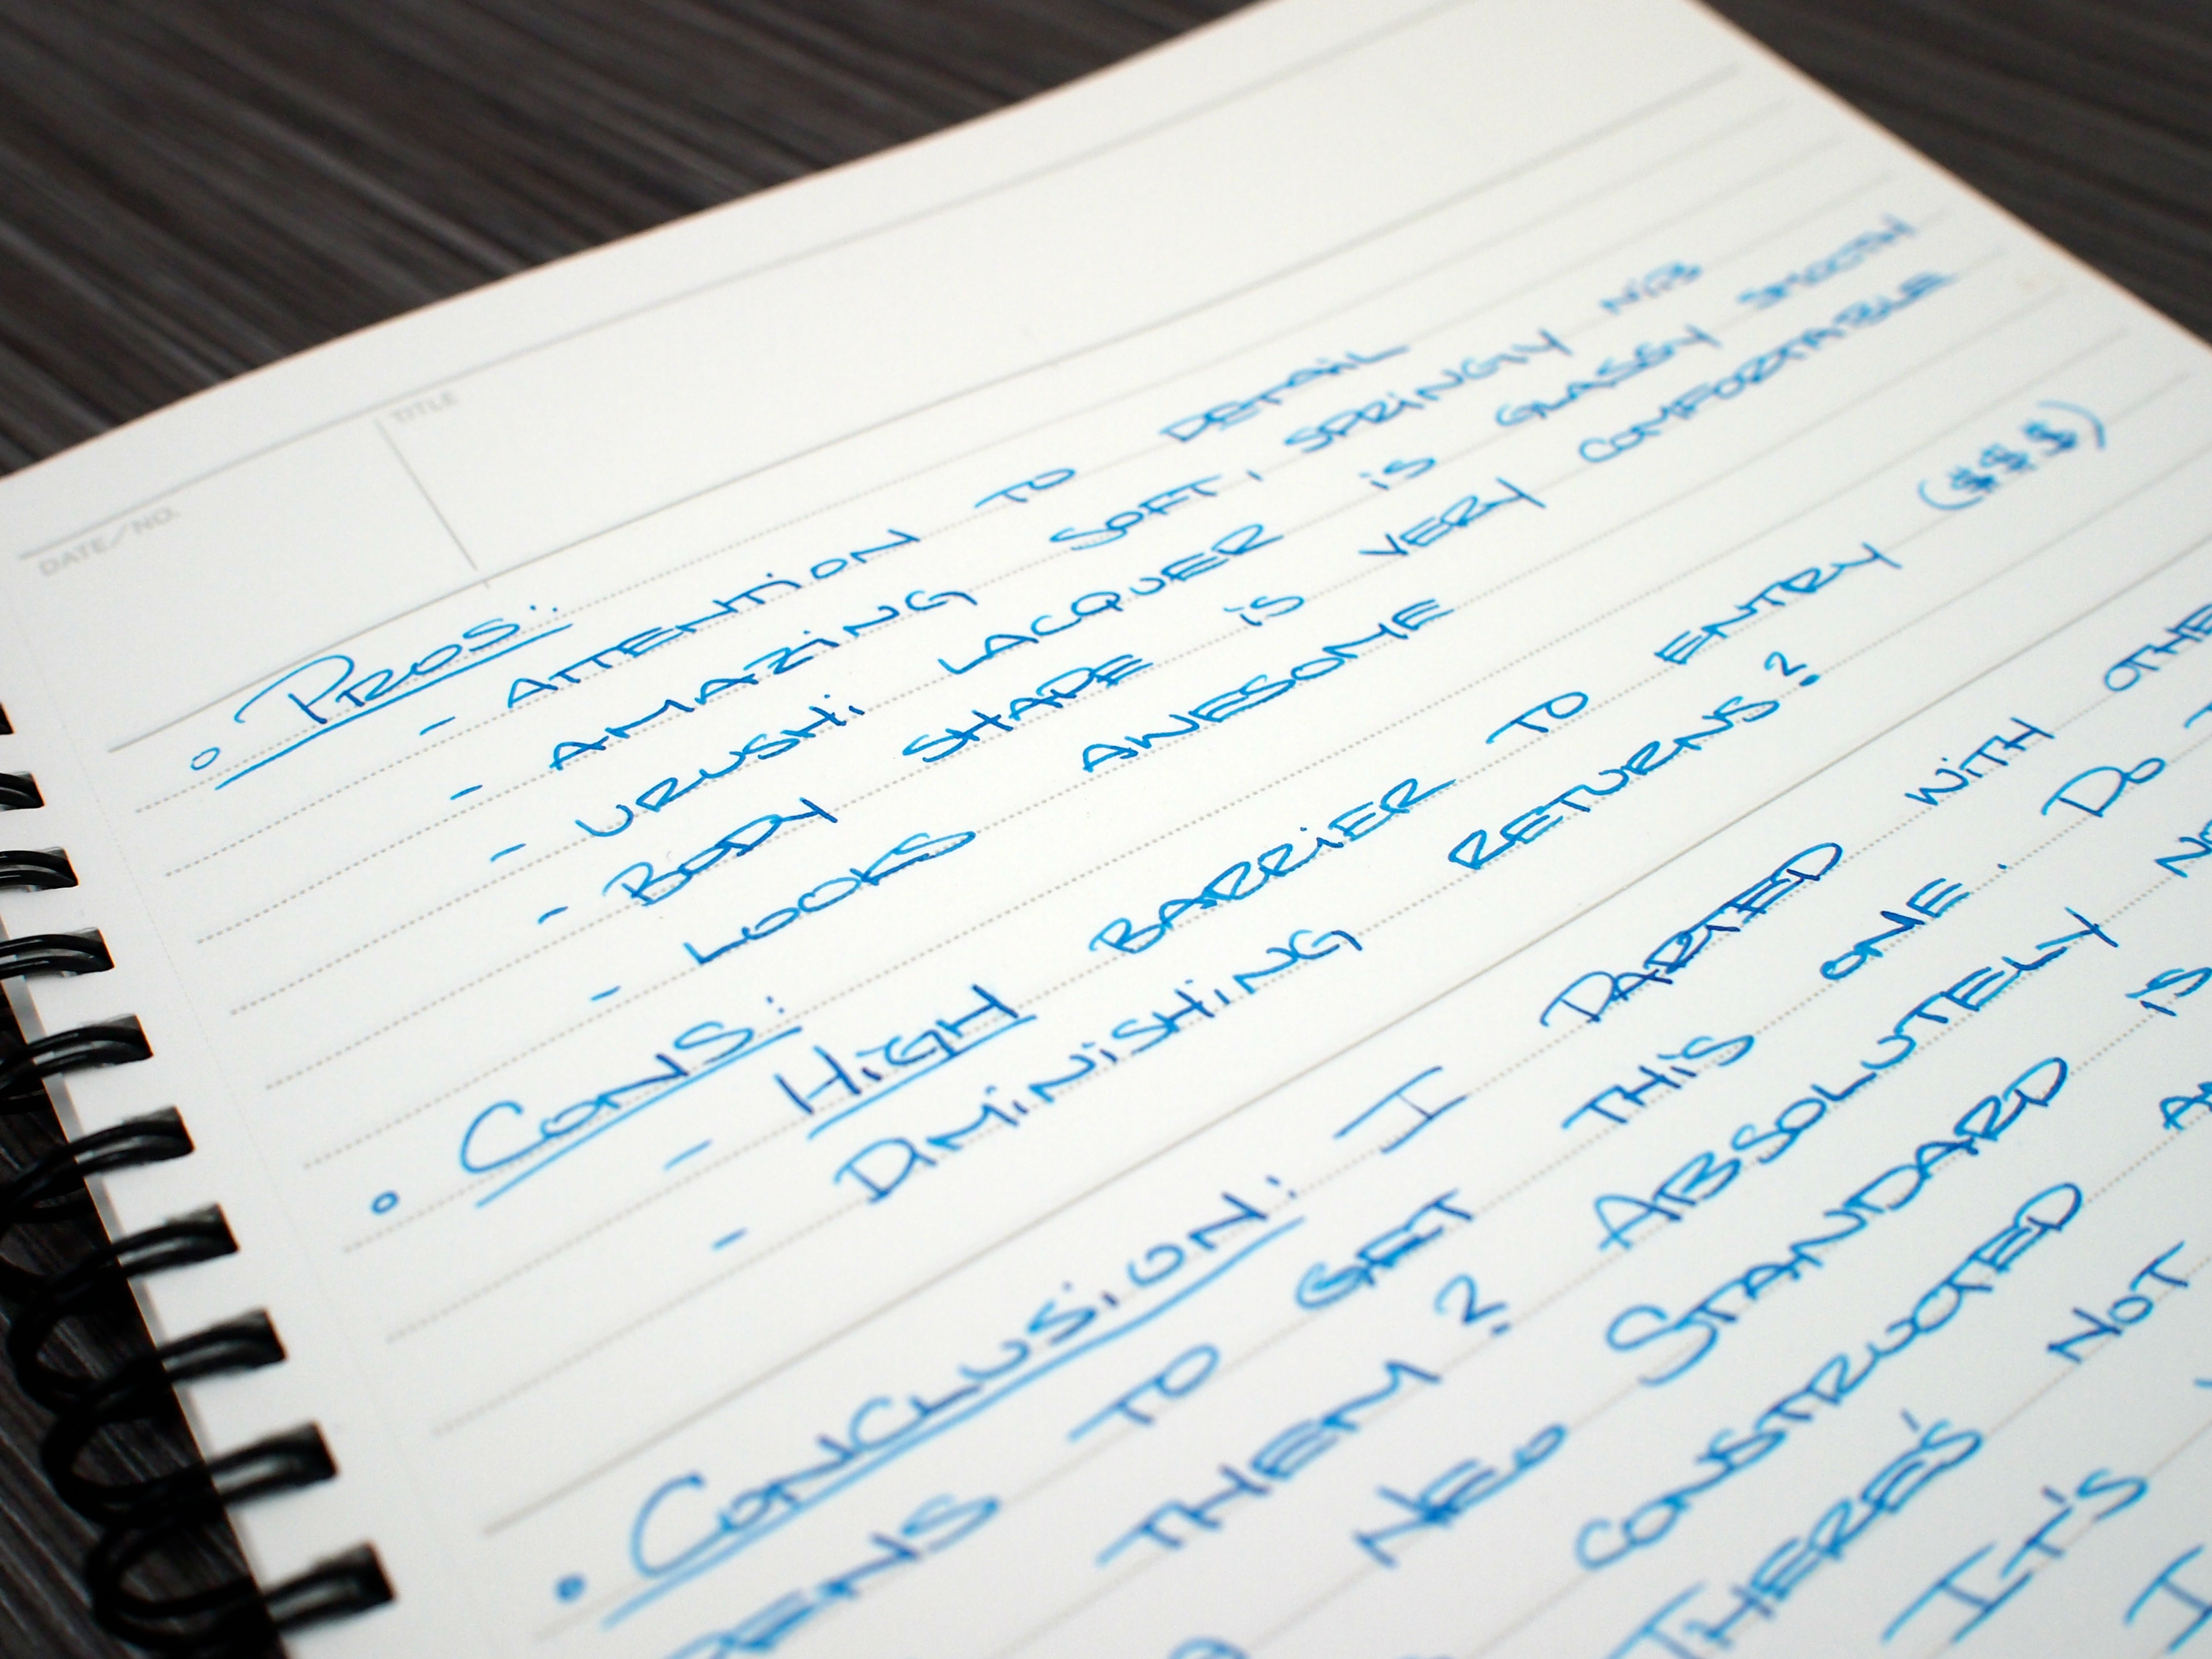 DATE/NO. TITLE
◦ PROS:
- ATTENTION TO DETAIL
- AMAZING SOFT, SPRINGLY NIB
- URUSHI LACQUER IS GLASSY SMOOTH
- BODY SHAPE IS VERY COMFORTABLE
- LOOKS AWESOME
◦ CONS:
- HIGH BARRIER TO ENTRY ($$$)
- DIMINISHING RETURNS?
• CONCLUSION: I PARTED WITH OTHE
PENS TO GET THIS ONE. DO
THEM? ABSOLUTELY
NEO STANDARD IS
CONSTRUCTED
THERE'S NOT
IT'S
I